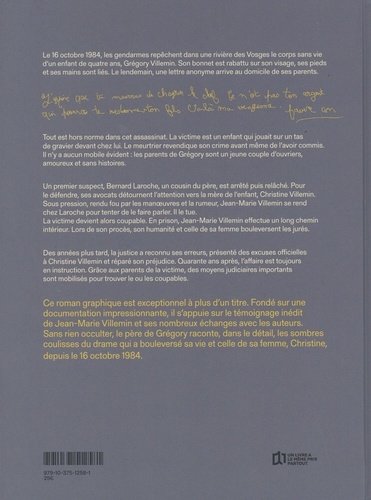 Le 16 octobre 1984, les gendarmes repêchent dans une rivière des Vosges le corps sans vie
d'un enfant de quatre ans, Grégory Villemin. Son bonnet est rabattu sur son visage, ses pieds
et ses mains sont liés. Le lendemain, une lettre anonyme arrive au domicile de ses parents.
J'espère que tu mourras de chagrin le chef. Ce n'est pas ton argent
qui pourra te redonner ton fils. Voilà ma vengeance. pauvre con
Tout est hors norme dans cet assassinat. La victime est un enfant qui jouait sur un tas
de gravier devant chez lui. Le meurtrier revendique son crime avant même de l'avoir commis.
Il n'y a aucun mobile évident : les parents de Grégory sont un jeune couple d'ouvriers,
amoureux et sans histoires.
Un premier suspect, Bernard Laroche, un cousin du père, est arrêté puis relâché. Pour
le défendre, ses avocats détournent l'attention vers la mère de l'enfant, Christine Villemin.
Sous pression, rendu fou par les manœuvres et la rumeur, Jean-Marie Villemin se rend
chez Laroche pour tenter de le faire parler. Il le tue.
La victime devient alors coupable. En prison, Jean-Marie Villemin effectue un long chemin
intérieur. Lors de son procès, son humanité et celle de sa femme bouleversent les jurés.
Des années plus tard, la justice a reconnu ses erreurs, présenté des excuses officielles
à Christine Villemin et réparé son préjudice. Quarante ans après, l'affaire est toujours
en instruction. Grâce aux parents de la victime, des moyens judiciaires importants
sont mobilisés pour trouver le ou les coupables.
Ce roman graphique est exceptionnel à plus d'un titre. Fondé sur une
documentation impressionnante, il s'appuie sur le témoignage inédit
de Jean-Marie Villemin et ses nombreux échanges avec les auteurs.
Sans rien occulter, le père de Grégory raconte, dans le détail, les sombres
coulisses du drame qui a bouleversé sa vie et celle de sa femme, Christine,
depuis le 16 octobre 1984.
UN LIVRE A
LE MÊME PRIX
PARTOUT.